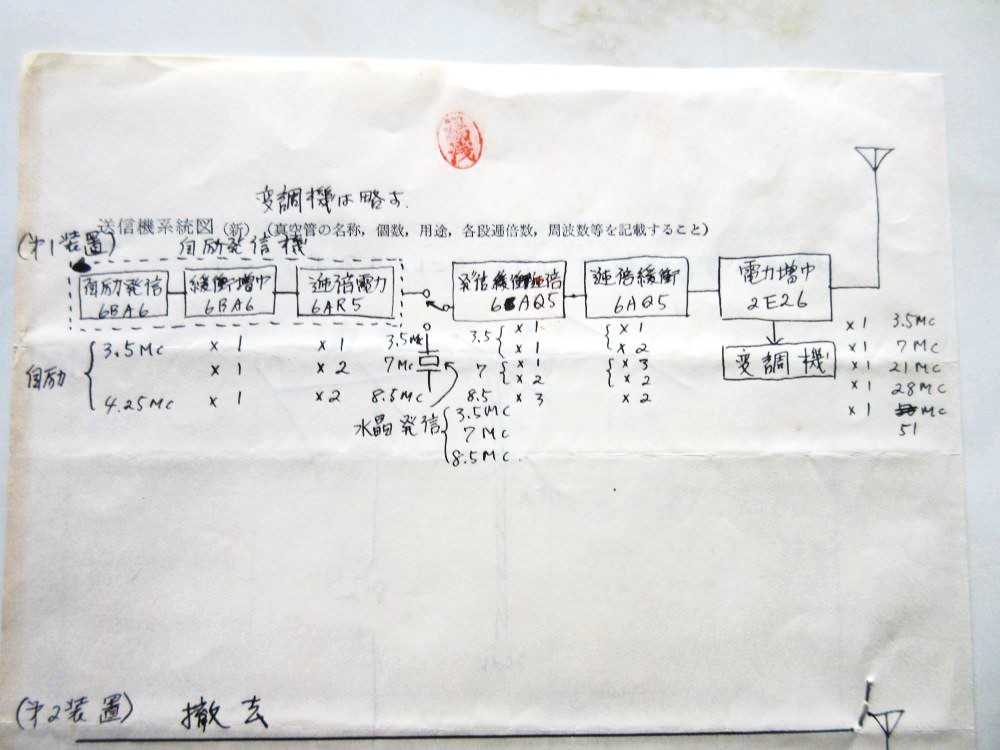 変調機は略す.
送信機系統図 (新) (真空管の名称, 個数, 用途, 各段逓倍数, 周波数等を記載すること)
(第1装置) 自励発信機
自励発信 6BA6
緩衝増中 6BA6
逓倍電力 6AR5
発信緩衝逓倍 6AQ5
逓倍緩衝 6AQ5
電力増中 2E26
変調機
自励
3.5Mc ×1 ×1 3.5Mc
×1 ×2 7Mc
4.25Mc ×1 ×2 8.5Mc
水晶発信
3.5Mc
7Mc
8.5Mc.
3.5 ×1 ×1
×1 ×2
7 ×1 ×3
×2 ×2
8.5 ×3 ×2
×1 3.5Mc
×1 7Mc
×1 21Mc
×1 28Mc
×1 Mc
51
(第2装置) 撤去